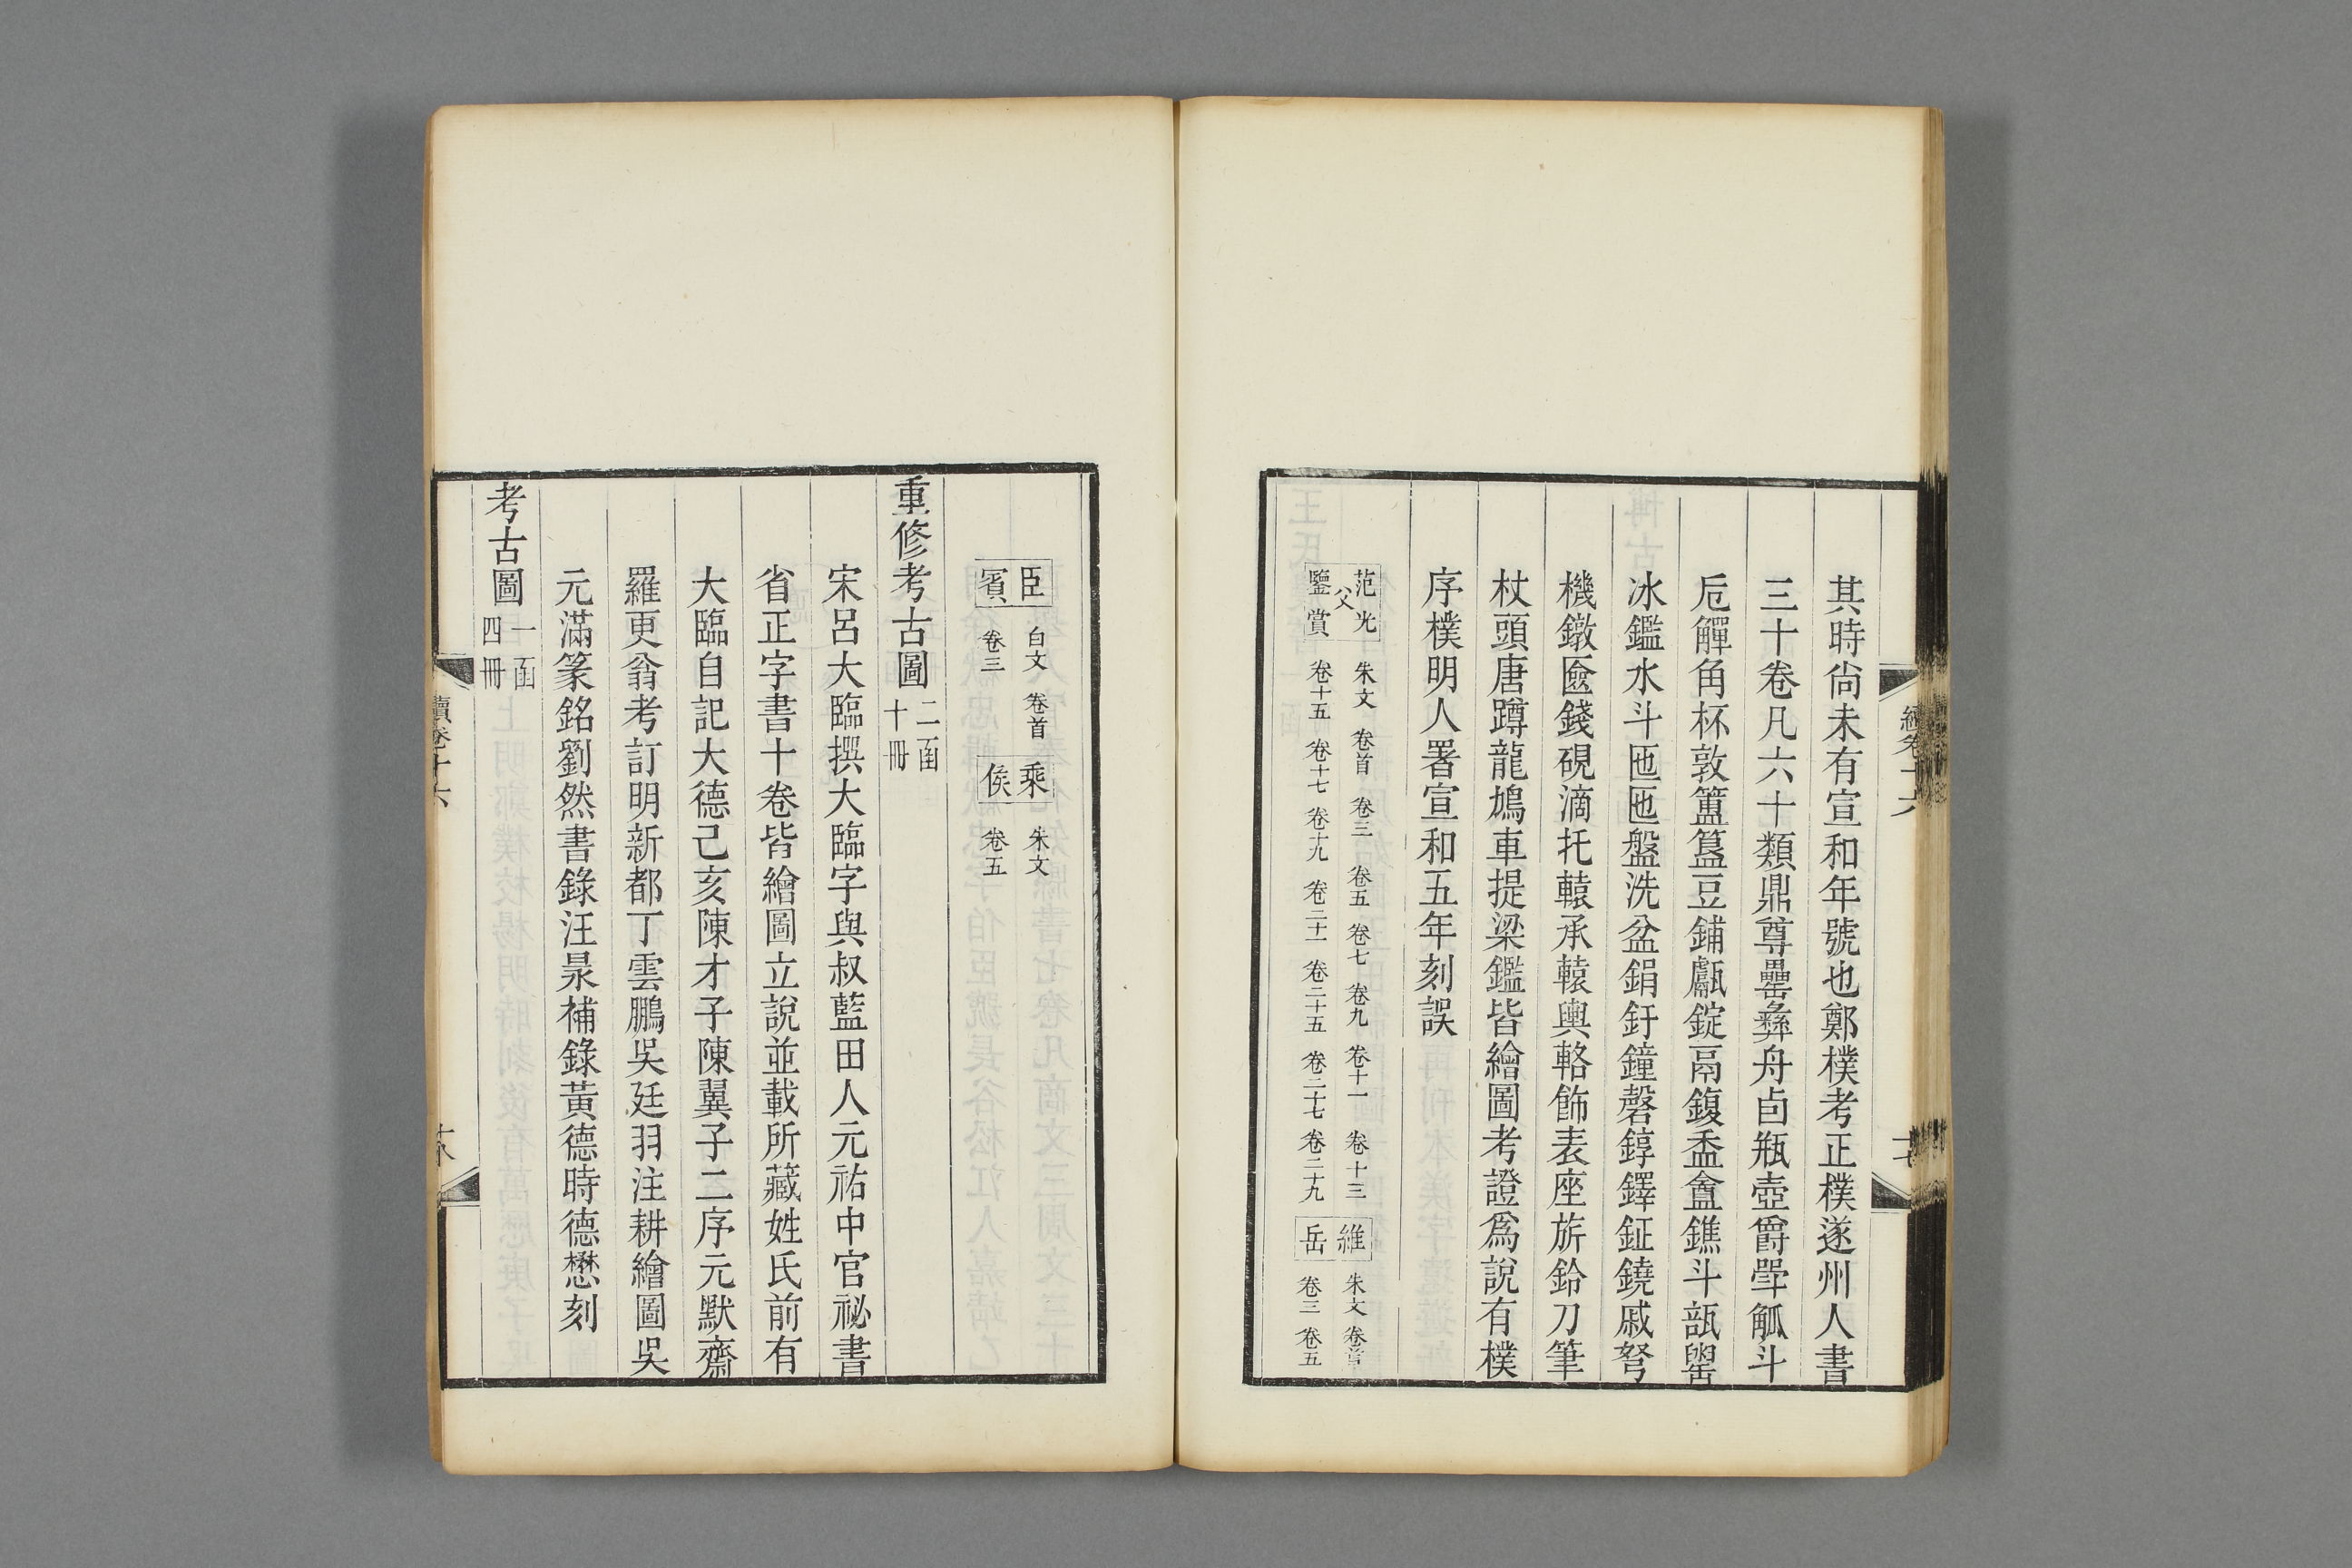 其時尚未有宣和年號也鄭樸考正樸遂州人書
三十卷凡六十類鼎尊罍彝舟卣瓶壺爵斝觚斗
卮觶角杯敦簠簋豆鋪甗錠鬲鍑盉盦鐎斗瓿罌
冰鑑水斗匜匜盤洗盆鋗釪鐘磬錞鐸鉦鐃戚弩
機鐓匳錢硯滴托轅承轅輿輅飾表座旂鈴刀筆
杖頭唐蹲龍鳩車提梁鑑皆繪圖考證為說有樸
序樸明人署宣和五年刻誤
范光父鑒賞
朱文 卷首 卷三 卷五 卷七 卷九 卷十一 卷十三
卷十五 卷十七 卷十九 卷二十一 卷二十五 卷二十七 卷二十九
維岳
朱文 卷首
卷三 卷五
續卷十六
十七
臣賓
白文 卷首
卷三
乘侯
朱文
卷五
重修考古圖 二函十冊
宋呂大臨撰大臨字與叔藍田人元祐中官祕書
省正字書十卷皆繪圖立說並載所藏姓氏前有
大臨自記大德己亥陳才子陳翼子二序元默齋
羅更翁考訂明新都丁雲鵬吳廷羽注耕繪圖吳
元滿篆銘劉然書錄汪杲補錄黃德時德懋刻
考古圖 一函四冊
續卷十六
十八